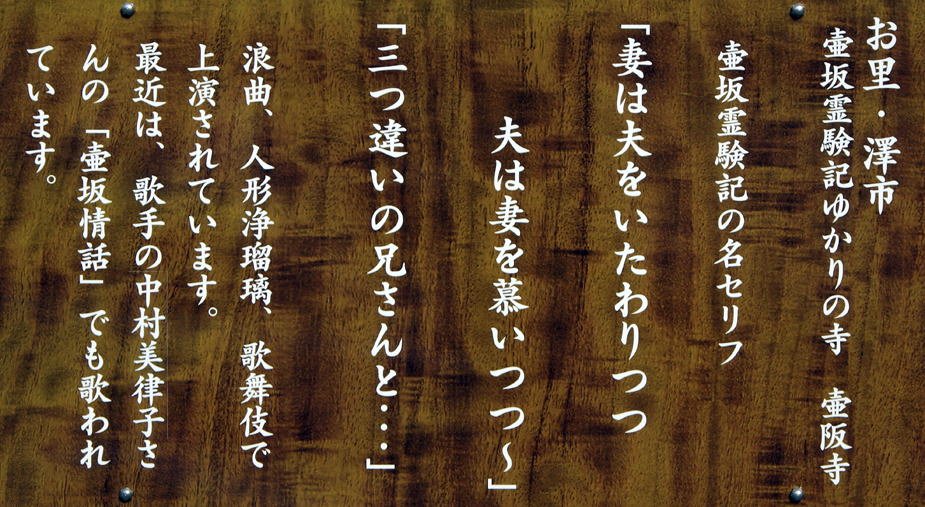 お里・澤市
壺坂霊験記ゆかりの寺　壺阪寺
壺坂霊験記の名セリフ
「妻は夫をいたわりつつ
夫は妻を慕いつつ～」
「三つ違いの兄さんと・・・」
浪曲、人形浄瑠璃、歌舞伎で
上演されています。
最近は、歌手の中村美律子さ
んの「壺坂情話」でも歌われ
ています。